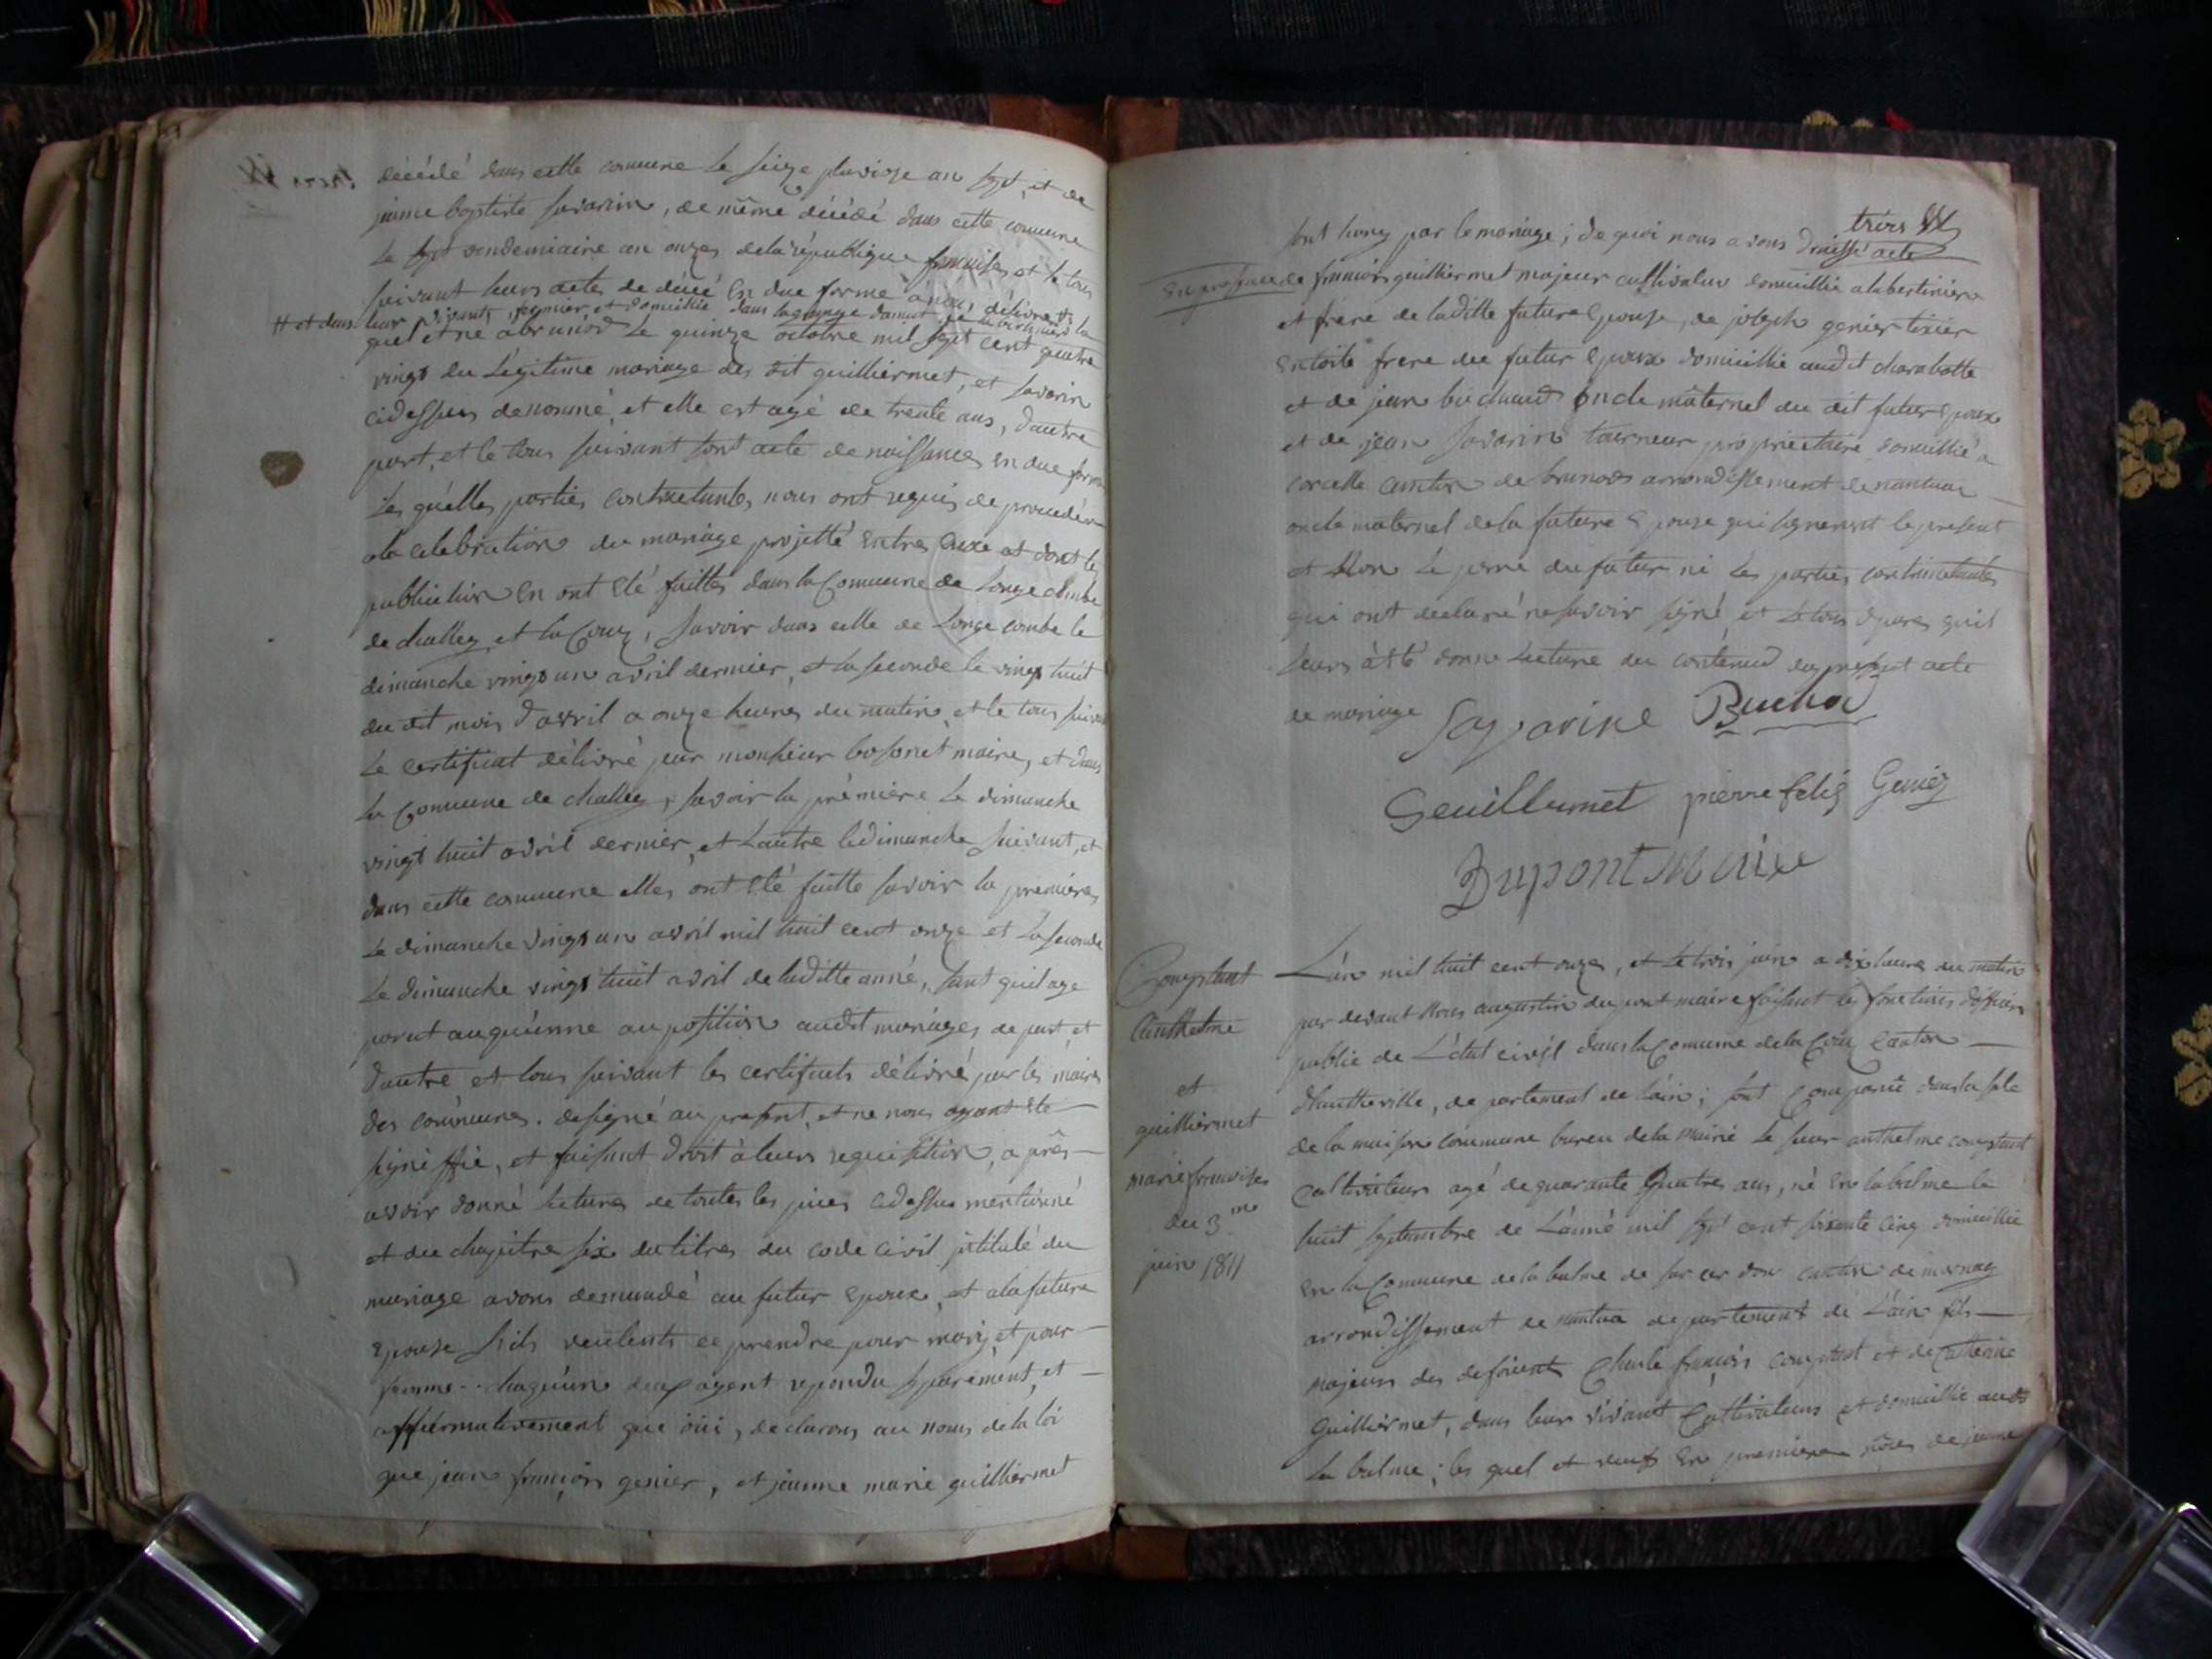 décédé dans cette commune le seize pluviose an sept, et de
jeanne baptiste savarin, de même décédé dans cette commune
le sept vendemiaire an onzes dela république francaises et le tous
suivant leurs actes de décé en due forme a nous délivré
# et dans leur vivants fermier, et domicillié dans la grange
quel et né a brunod le quinze octobre mil sept cent quatre
vingt du légitime mariage des dit guilliermet, et savarin
cidessus denommé, et elle est agé de trente ans, dautre
part, et le tous suivant sont acte de naissances en due forme
les quélles parties contractantes nous ont requis de procéder
ala celebration du mariage projetté entres eux et dont les
publication en ont été faittes dans la Commune de Longecombe
de challey et la Couz, savoir dans celle de Longe combe le
dimanche vingt un avril dernier, et la seconde le vingt huit
du dit mois davril a onze heures du matin, et le tous suivant
le certificat délivré par monsieur bosonet maire, et dans
la Commune de challey, savoir la première le dimanche
vingt huit avril dernier, et Lautre le dimanche suivant, et
dans cette commune elles ont été faitte savoir la premières
le dimanche vingt un avril mil huit cent onze et la seconde
le dimanche vingt huit avril de laditte anné, sant quil aye
parut auquéunne auposition audit mariages de part, et
dautre et tous suivant les certificats délivré par les maires
des communes. designé au present, et ne nous ayant été
signiffié, et faisant droit à leurs requisition, après
avoir donné lectures de toutes les pieces cidessus mentionné
et du chapitre six du titres du code civil, intitulé du
mariage avons demandé au futur epoux, et ala future
epouse s'ils veulents ce prendre pour mary, et pour
femme.. chaquéun deux ayent repondu separément, et
affiermativement que oüi, declarons au nom de la loi
que jean françois genier, et jeanne marie guilliermet
sont huny par le mariage; de quoi nous avons draissé acte
en presance de francois guilliermet majeur cultivateur domicillié alabertinière
et frère de laditte future epouse, de joseph genier tixier
en toile frere du futur epoux domicillié audit charabotte
et de jean buchaud oncle maternel du dit futur epoux
et de jean savarin tourneur propriétaire domicillié a
corcelle canton de brunods arrondissement de nantua
oncle maternel dela future epouse qui signeront le present
et non le perre du futur ni les parties contractantes
qui ont declaré ne savoir signé et le tous apres quil
leurs à été donné lecture du contenud du present acte
de mariage Savarine Buchod
Geuillermet pierre felix Geniez
Dupont Maire
Conystant
Anthelme
et
guilliermet
marie francoises
du 3me
juin 1811
L'an mil huit cent onzes, et le trois juin a dix heures du matin
par devant Nous augustin dupont maire faisant les fonctions dofficier
public de L'état civil dans la Commune dela Couz Canton
dhautheville, departement de l'ain; sont Comparü dans la sale
de la maison commune bureu dela mairié le sieur anthelme conystant
Cultivateur agé de quarante quatres ans, né en la balme le
huit septembre de L'anné mil sept cent soixante cinq domicillié
en la Commune dela balme de sur cerdon canton de
arrondissement de nantua departement de L'ain fils
majeur des defunts Charle françois conystant et de Catherine
Guilliermet, dans leur vivant Cultivateurs et domicillié audit
la balme; les quel et veuf en premiere nôces de jeanne